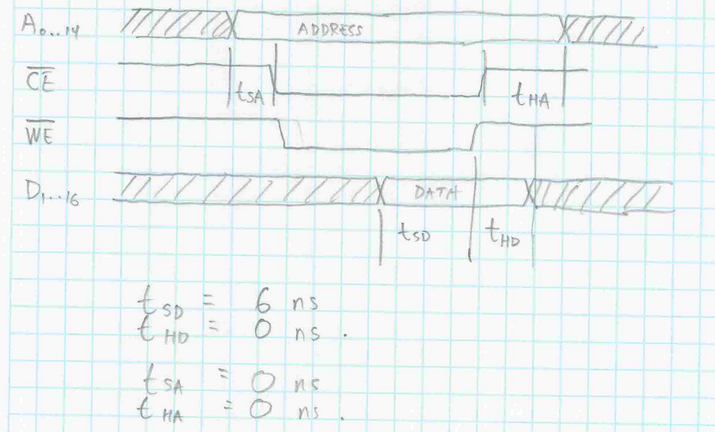 A0..14 ADDRESS
CE
tSA tHA
WE
D1..16 DATA
tSD tHD
tSD = 6 ns
tHD = 0 ns.
tSA = 0 ns
tHA = 0 ns.